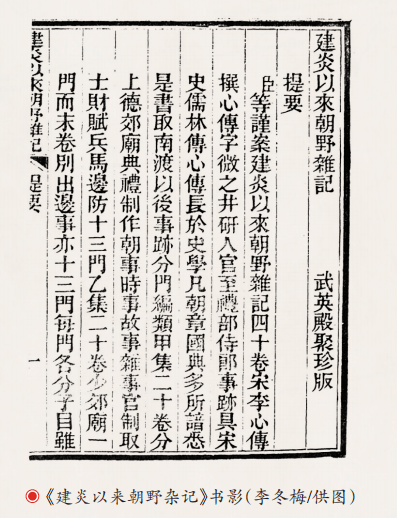 建炎以來朝野雜記　武英殿聚珍版
提要
臣等謹案建炎以來朝野雜記四十卷宋李心傳
撰心傳字微之井研人官至禮部侍郎事跡具宋
史儒林傳心傳長於史學凡朝章國典多所諳悉
是書取南渡以後事跡分門編類甲集二十卷分
上德郊廟典禮制作朝事時事故事雜事官制取
士財賦兵馬邊防十三門乙集二十卷少郊廟一
門而末卷別出邊事亦十三門每門各分子目雖
建炎以來朝野雜記　提要　一
◉《建炎以来朝野杂记》书影(李冬梅/供图)